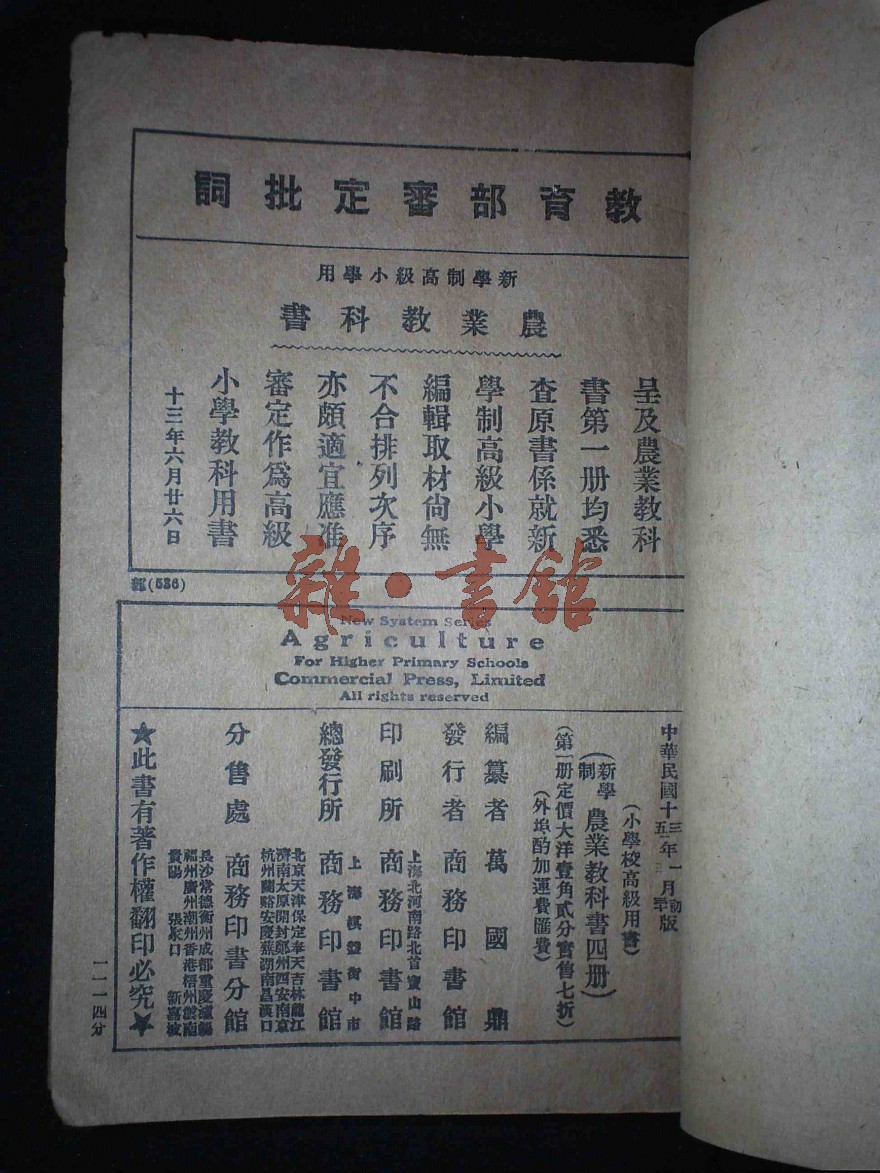 教育部審定批詞
新學制高級小學用
農業教科書
呈及農業教科
書第一册均悉
查原書係就新
學制高級小學
編輯取材尙無
不合排列次序
亦頗適宜應准
審定作爲高級
小學教科用書
十三年六月廿六日
部(536)
雜·書館
New System Series
Agriculture
For Higher Primary Schools
Commercial Press, Limited
All rights reserved
中華民國十三年一月初版
(小學校高級用書)
(新學制農業教科書四册)
(第一册定價大洋壹角貳分實售七折)
(外埠酌加運費匯費)
編纂者 萬國鼎
發行者 商務印書館
上海北河南路北首寶山路
印刷所 商務印書館
上海棋盤街中市
總發行所 商務印書館
北京天津保定奉天吉林龍江
濟南太原開封鄭州西安南京
杭州蘭谿安慶蕪湖南昌漢口
分售處 商務印書分館
長沙常德衡州成都重慶瀘縣
福州廣州潮州香港梧州雲南
貴陽 張家口 新嘉坡
★此書有著作權翻印必究★
一一一四分